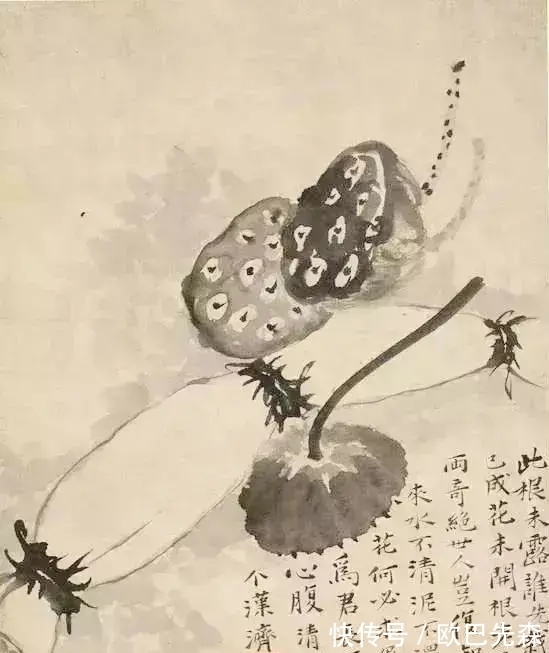 此根未露誰先
已成花未開根
兩哥絕世人豈復
來水不清泥不
花何必
為君
心腹清
个藻濟
快传号 / 欧巴先森